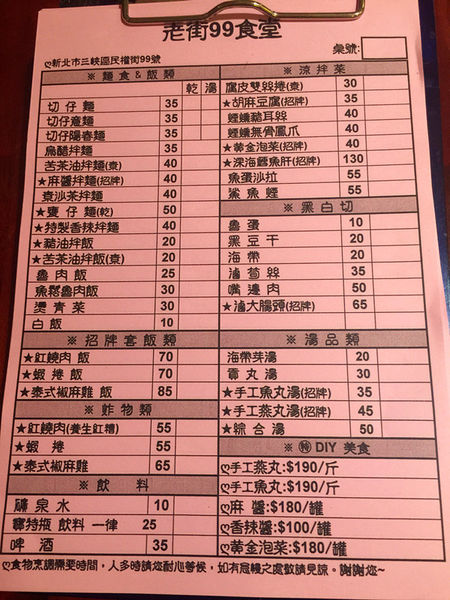 老街99食堂
桌號:
ღ新北市三峽區民權街99號
※ 麵食&飯類
乾 湯
切仔麵 35
切仔意麵 35
切仔陽春麵 35
烏醋拌麵 40
苦茶油拌麵(素) 40
★麻醬拌麵(招牌) 40
素沙茶拌麵 40
★甕仔麵(乾) 50
★特製香辣拌麵 40
★豬油拌飯 20
★苦茶油拌飯(素) 20
魯肉飯 25
魚鬆魯肉飯 30
燙青菜 30
白飯 10
※ 招牌套飯類
★紅燒肉 飯 70
★蝦 捲 飯 70
★泰式椒麻雞 飯 85
※ 炸物類
★紅燒肉(養生紅糟) 55
★蝦 捲 55
★泰式椒麻雞 65
※ 飲 料
礦泉水 10
寶特瓶 飲料 一律 25
啤 酒 35
※ 涼拌菜
腐皮雙絲捲(素) 30
★胡麻豆腐(招牌) 35
煙燻豬耳絲 40
煙燻無骨鳳爪 40
★黃金泡菜(招牌) 40
★深海鱈魚肝(招牌) 130
魚蛋沙拉 55
鯊魚煙 55
※ 黑白切
魯蛋 10
黑豆干 20
海帶 20
滷筍絲 35
嘴邊肉 50
★滷大腸頭(招牌) 65
※ 湯品類
海帶芽湯 20
貢丸湯 30
★手工魚丸湯(招牌) 35
★手工燕丸湯(招牌) 45
★綜合湯 50
※ ㊕ DIY 美食
ღ手工燕丸:$190/斤
ღ手工魚丸:$190/斤
ღ麻 醬:$180/罐
ღ香辣醬:$100/罐
ღ黃金泡菜:$180/罐
ღ食物烹調需要時間，人多時請您耐心等候，如有怠慢之處敬請見諒。謝謝您~